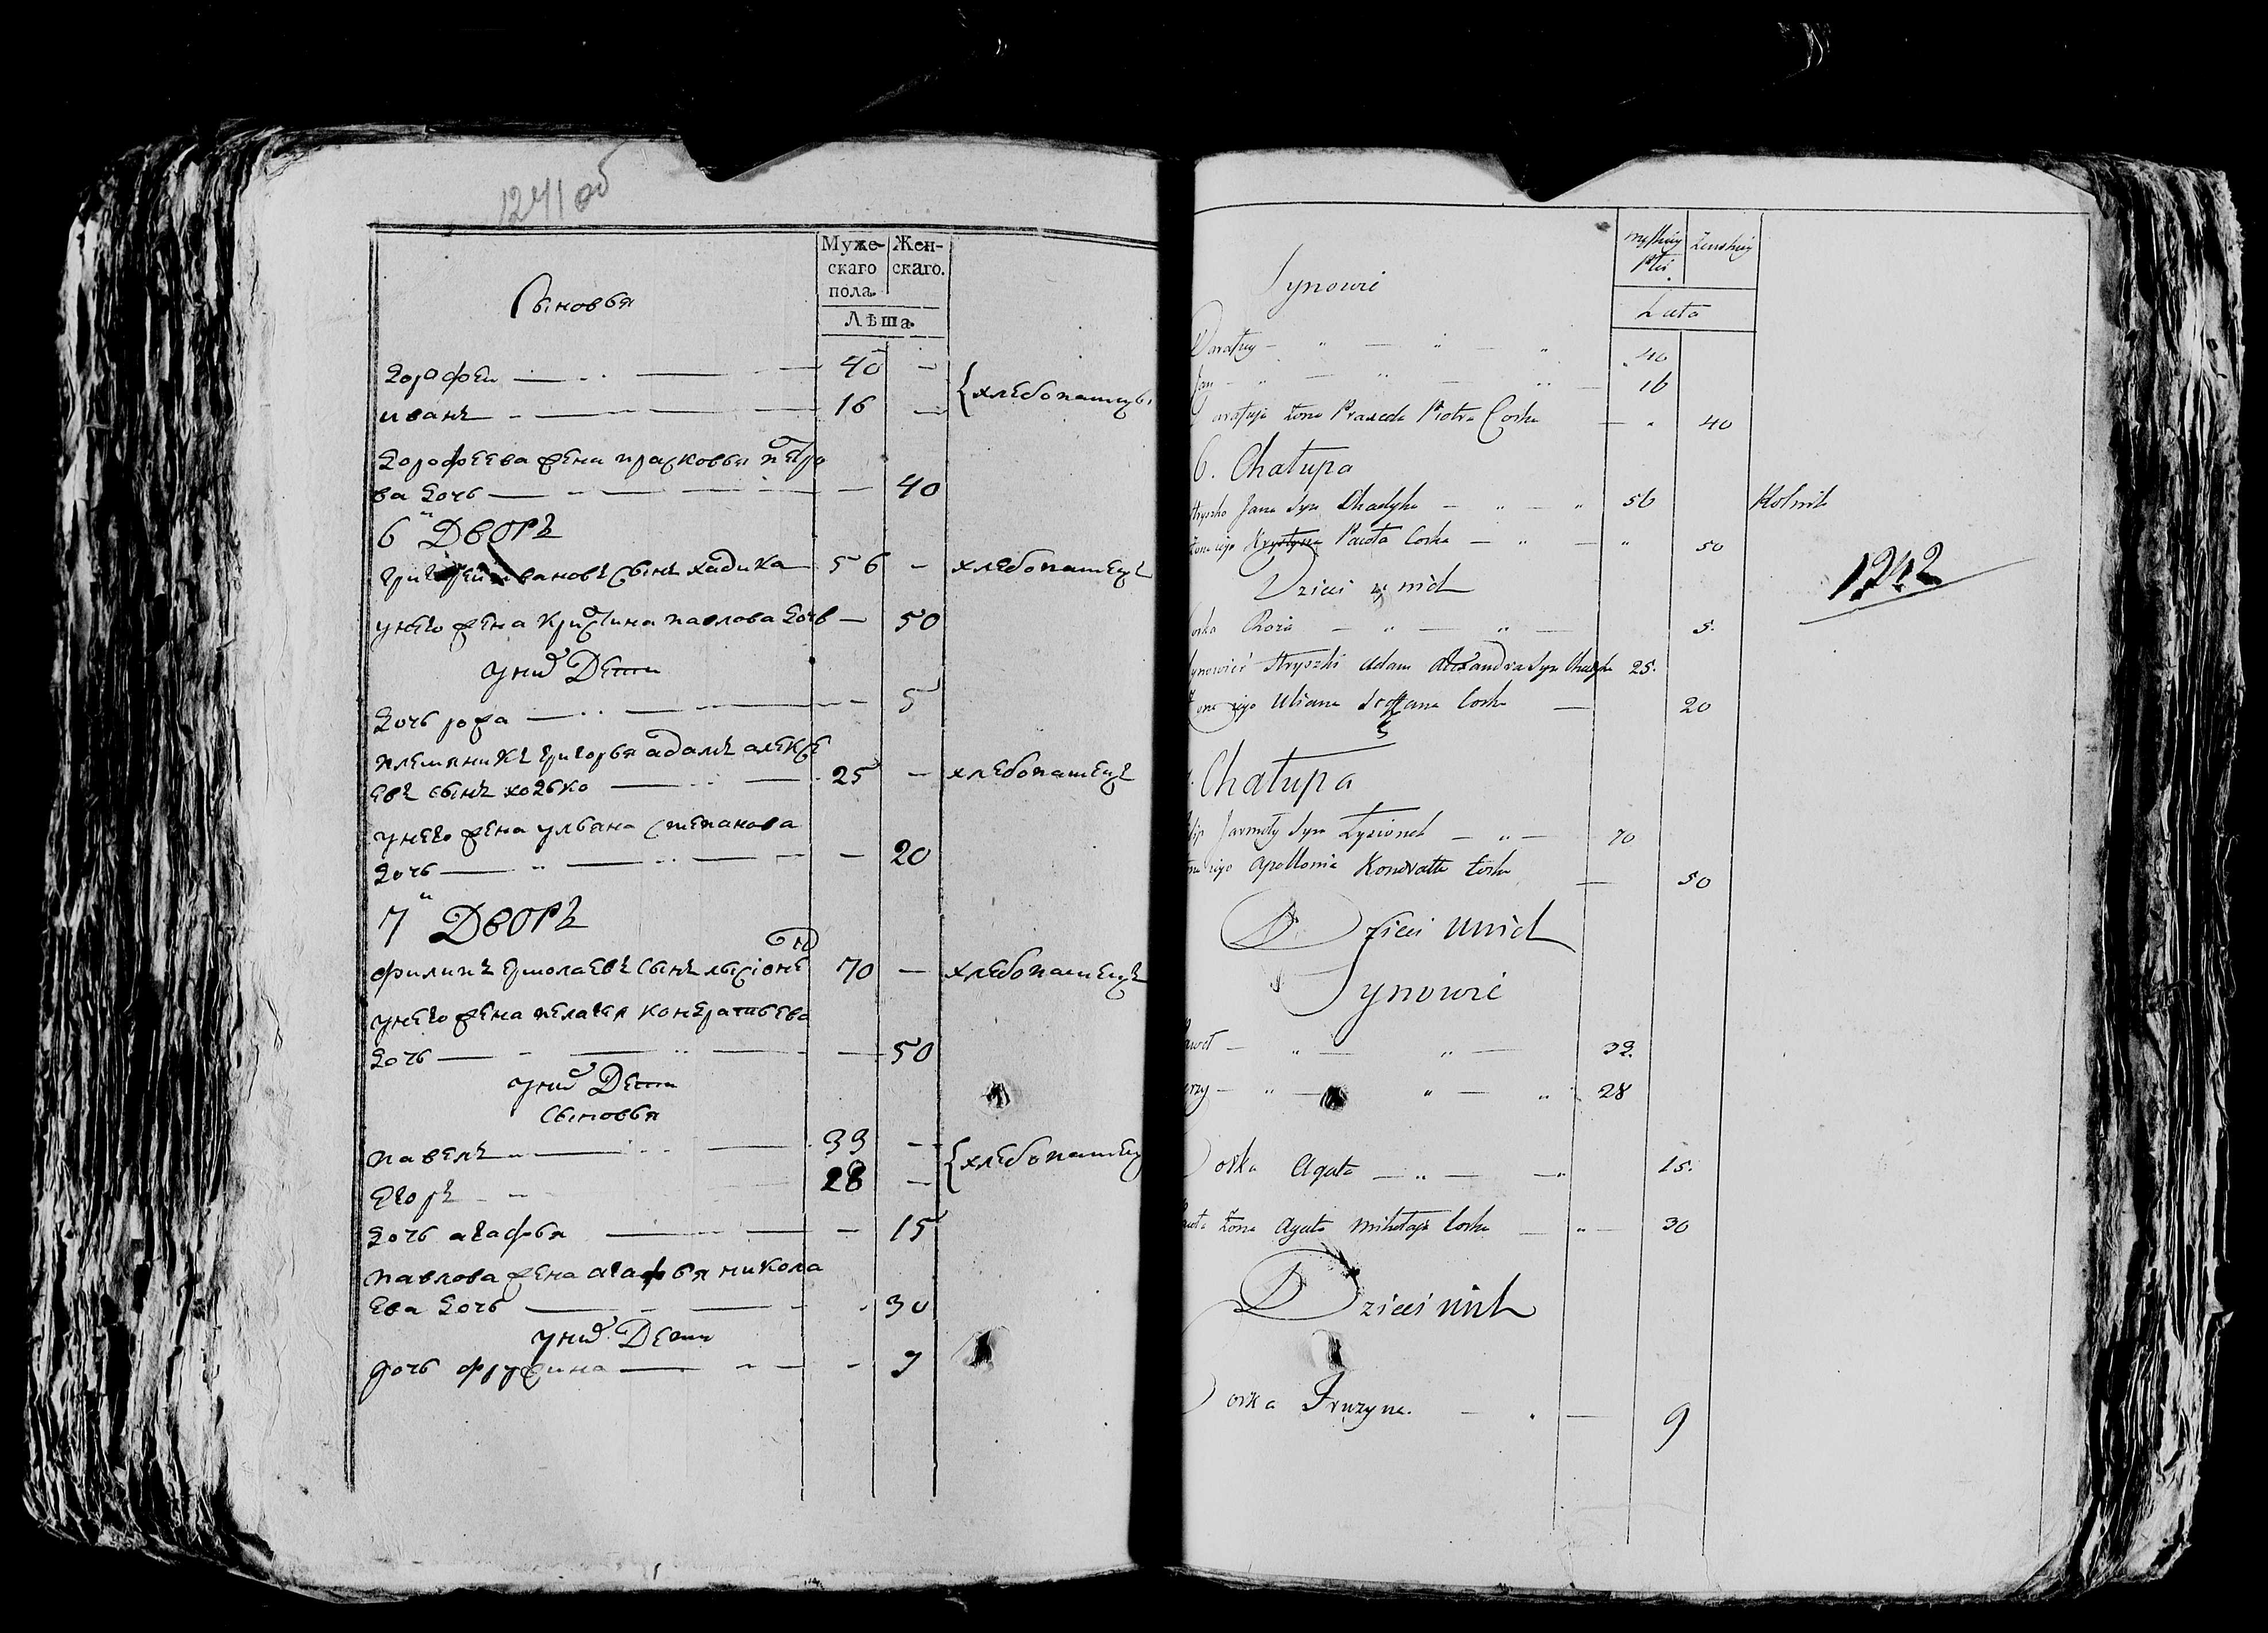 1241 об
Муже- Жен-
скаго скаго.
пола.
Лѣта.
Сыновья
дорофеи 40 —
иванъ 16 — хлебопашцы
дорофеева жена прасковья петро
ва дочь — 40
6 й Дворъ
григорей ивановъ сынъ хадика 56 — хлебопашецъ
унего жена кристина павлова дочь — 50
уних Дети
дочь рожа 5
племяникъ григорья адамъ алексе
евъ сынъ ходько 25 — хлебопашецъ
унего жена ульяна степанова
дочь — 20
7 й Дворъ
филипъ ермолаевъ сынъ лысіонек 70 — хлебопашецъ
унего жена пелагея кондратьева
дочь — 50
уних Дети
сыновья
павелъ 33 —
егоръ 28 — хлебопашец
дочь агафья — 15
павлова жена агафья никола
ева дочь 30
уних Дети
дочь фружина — 9
męskiey żenskiey
Płci
Lata
Synowie
Daratey 40
Jan 16
aratuja żona Praxeda Piotra Corka 40
6. Chałupa
Hryszko Jana Syn Chadyka 56 Rolnik
Żona iego Krystyna Pawła Corka 50
Dzieci z nich
orka Roża 5.
ynowiec Hryszki Adam Alexandra Syn Chadyka 25.
ona iego Uliana Stefana Corka 20
Chałupa
ilip Jarmoły Syn Łysionek 70
na iego Apollonia Kondratta Corka 50
Dzieci u nich
Synowie
aweł 32.
erzy 28
Corka Agata 15.
awła Żona Agata Mikołaja Corka 30
Dzieci nich
Corka Fruzyna. 9
1242